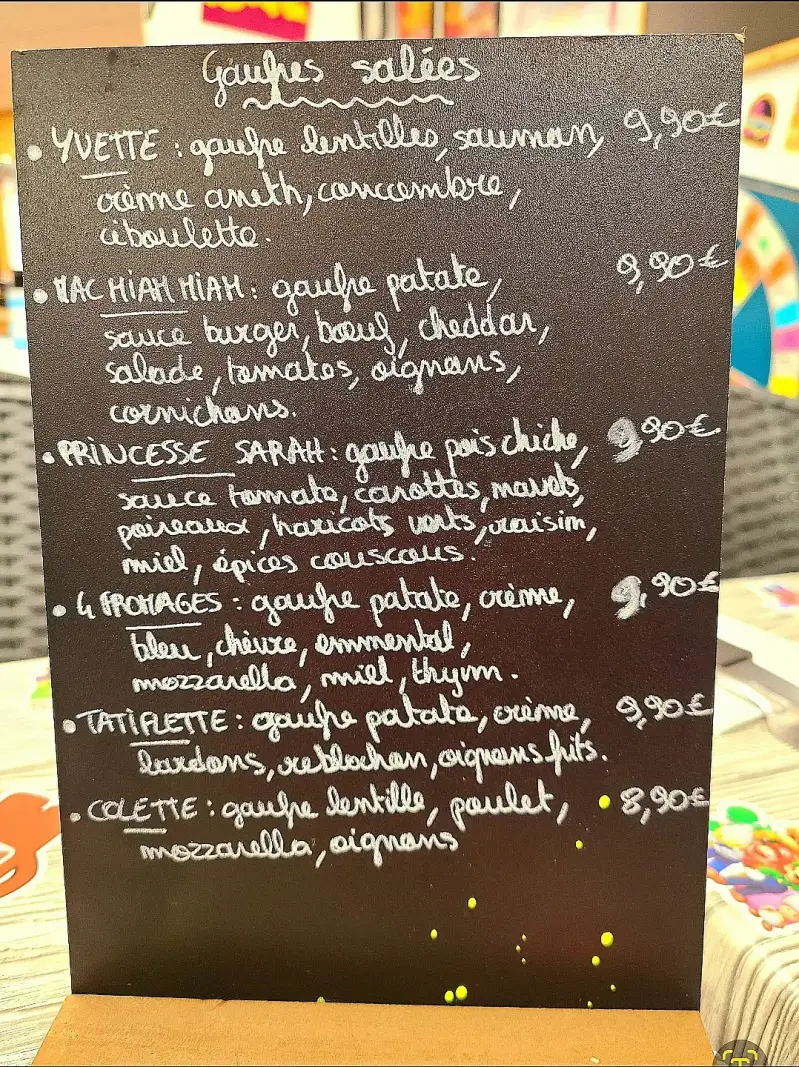 Gaufres salées
• YVETTE : gaufre lentilles, saumon, 9,90€
crème aneth, concombre,
ciboulette.
• MAC MIAM MIAM : gaufre patate, 9,90€
sauce burger, bœuf, cheddar,
salade, tomates, oignons,
cornichons.
• PRINCESSE SARAH : gaufre pois chiche, 9,90€
sauce tomate, carottes, navets,
poireaux, haricots verts, raisin,
miel, épices couscous.
• 4 FROMAGES : gaufre patate, crème, 9,90€
bleu, chèvre, emmental,
mozzarella, miel, thym.
• TATIFLETTE : gaufre patate, crème, 9,90€
lardons, reblochon, oignons frits.
• COLETTE : gaufre lentille, poulet, 8,90€
mozzarella, oignons